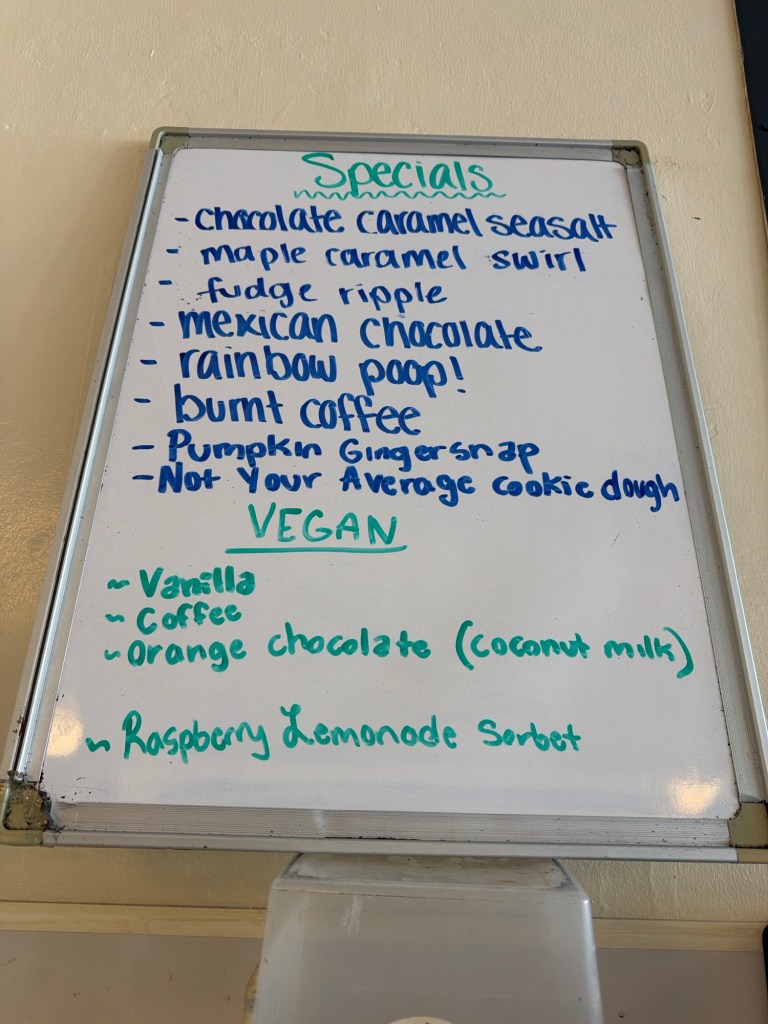 Specials
- chocolate caramel seasalt
- maple caramel swirl
- fudge ripple
- mexican chocolate
- rainbow poop!
- burnt coffee
- Pumpkin Gingersnap
- Not Your Average cookie dough
VEGAN
~ Vanilla
~ Coffee
~ Orange chocolate (coconut milk)
~ Raspberry Lemonade Sorbet